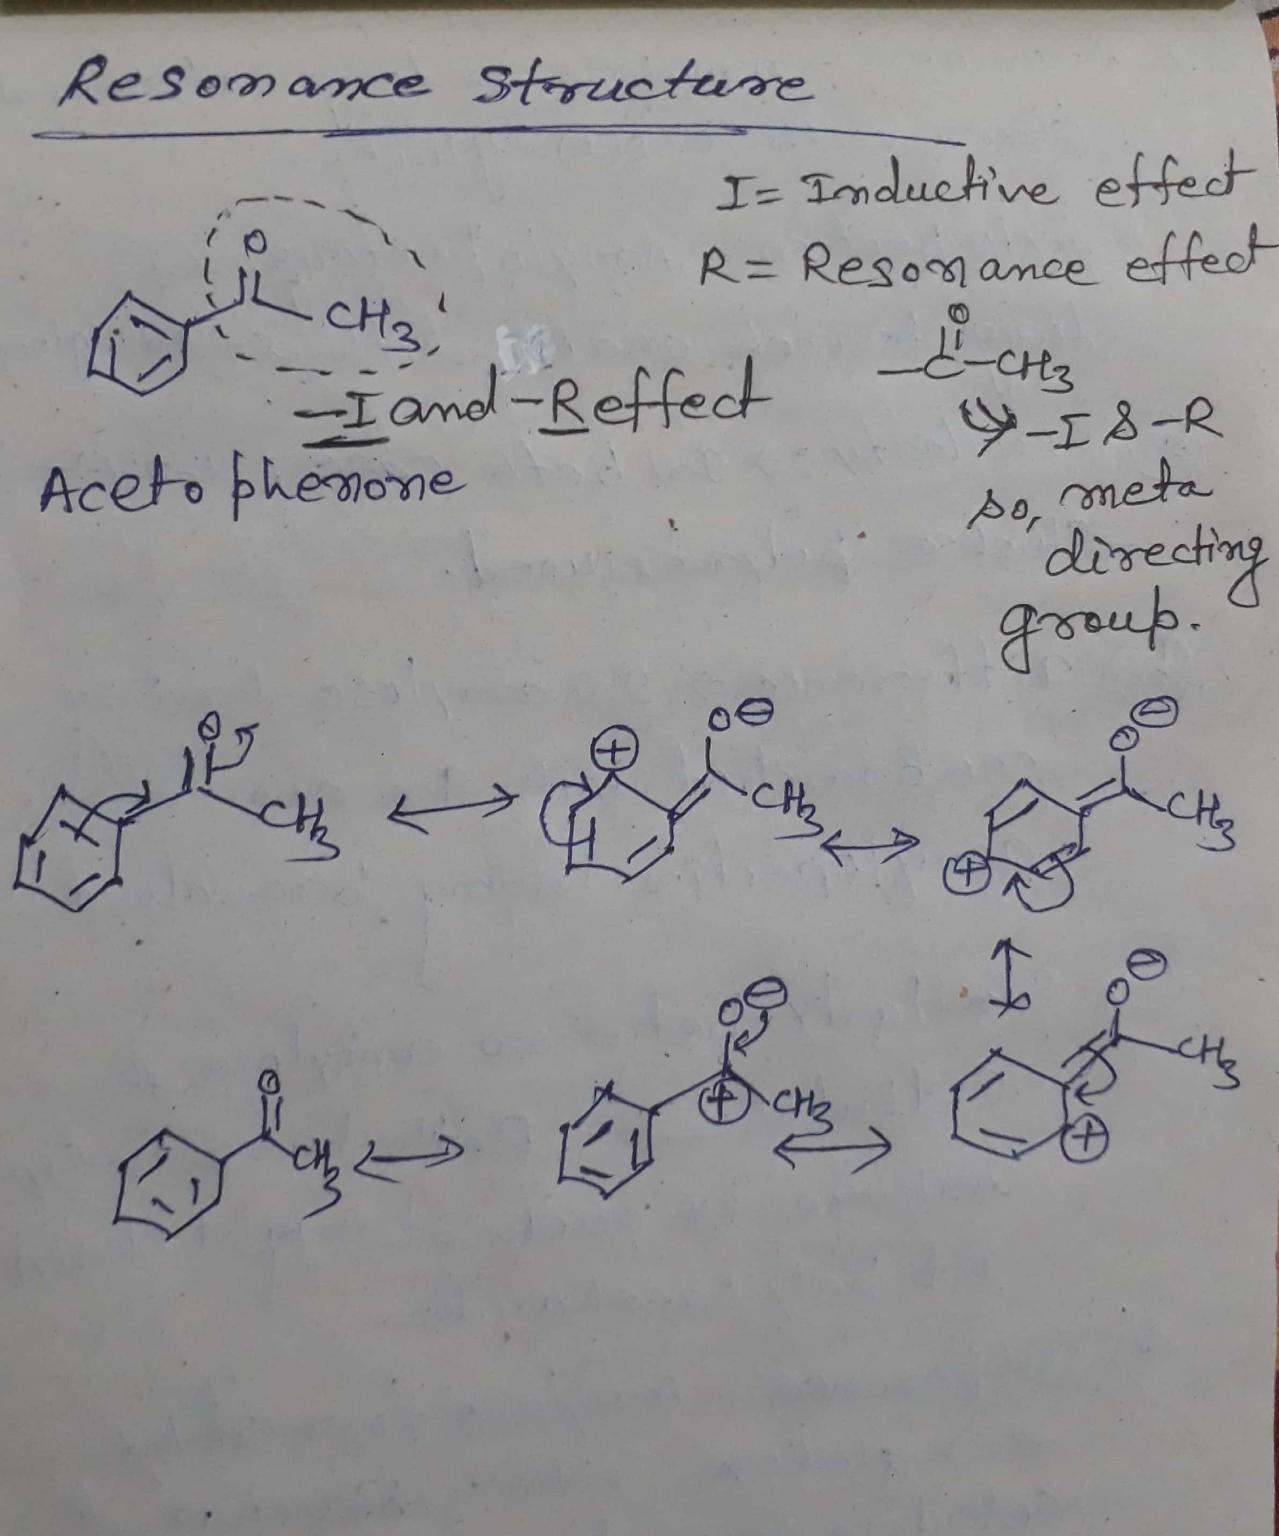 Resonance Structure
I = Inductive effect
R = Resonance effect
O
CH3
-I and -R effect
Acetophenone
O
-C-CH3
-I & -R
so, meta
directing
group.
O
CH3
⊕
O⊖
CH3
⊕
O⊖
CH3
O
CH3
⊕
O⊖
CH3
⊕
O⊖
CH3